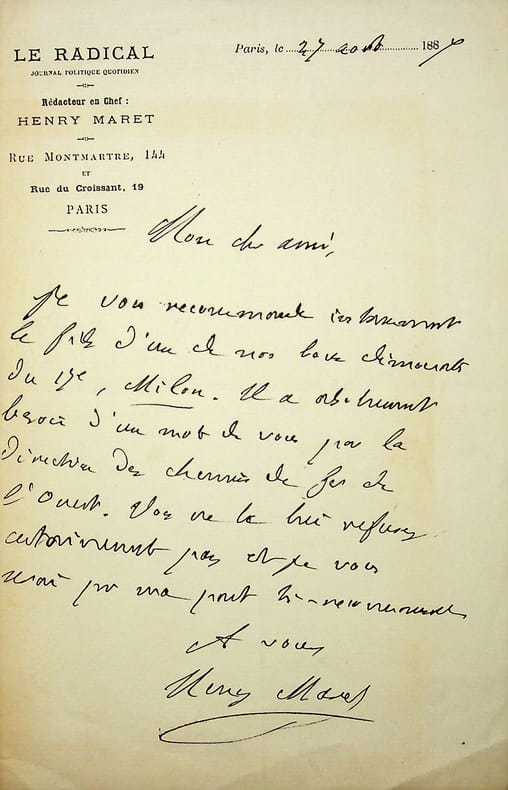 LE RADICAL
JOURNAL POLITIQUE QUOTIDIEN
Rédacteur en Chef :
HENRY MARET
RUE MONTMARTRE, 144
ET
Rue du Croissant, 19
PARIS
Paris, le 27 août 188
Mon cher ami,
Je vous recommande instamment
le fils d'un de nos bons
du 17e, Milon. Il a absolument
besoin d'un mot de vous pour la
direction des chemins de fer de
l'Ouest. Vous ne le lui refuserez
certainement pas et je vous
serai pour ma part très reconnaissant
A vous
Henry Maret